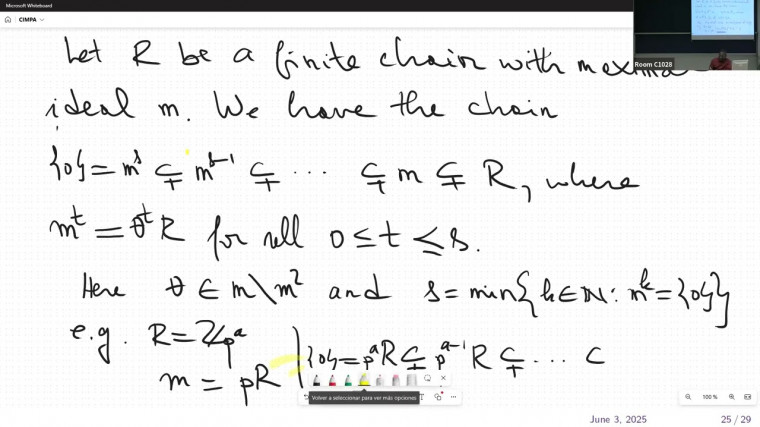 Microsoft Whiteboard
CIMPA
Room C1028
Let R be a finite chain with maxima
ideal m. We have the chain
{0} = m^s ⊊ m^{s-1} ⊊ ... ⊊ m ⊊ R, where
m^t = θ^t R for all 0 ≤ t ≤ s.
Here θ ∈ m\m^2 and s = min{k ∈ ℕ: m^k = {0}}
e.g. R = ℤ/p^a
m = pR
{0} = p^a R ⊊ p^{a-1} R ⊊ ... ⊂
Volver a seleccionar para ver más opciones
100 %
June 3, 2025
25 / 29